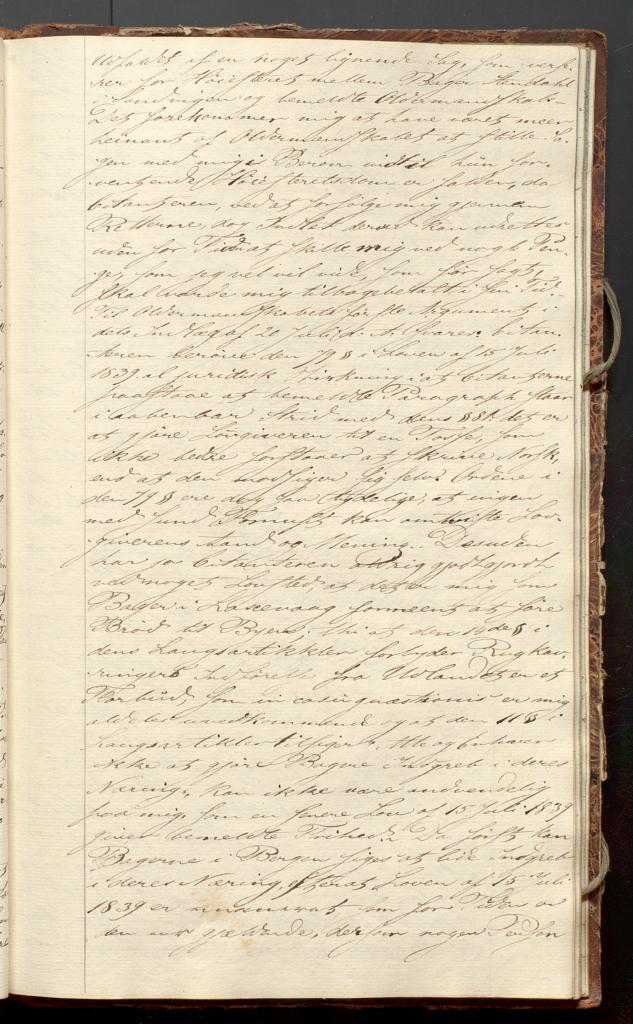 Udfaldet af en noget lignende Sag, som verse-
rer for Høiesteret mellem Bager Stendahl
i Sandvigen og bemeldte Oldermandskab.-
Det forekommer mig at have været meer
heinant af Oldermandskabet at stille Sa-
gen med mig i Beroe indtil hün for-
ventende Høiesteretsdom er falden, da
Citanteren, ved at forfølge mig gjennem
Retterne, dog Intet derved kan udrettes
uden for Tiden at skille mig ved nogle Pen-
ge, som jeg vel vil vide, som før sagt,
skal vorde mig tilbagebetalt i sin Tid.-
Til Oldermandskabets første Argument i
dets Indlæg af 20 Juli d. A. svares: Citan-
tenen berøve den 79 § i Loven af 15 Juli
1839 al juridisk Virkning i at Citanterne
paastaae at bemeldte Paragraph staaer
i aabenbar Strid med dens § 81. det er
at gjøre Lovgiveren til en Tosse, som
ikke bedre forstaaer at skrive Norsk,
end at den modsiger sig selv. Ordene i
den 79 § ere dog saa tydelige, at ingen
med sund Fornuft kan omtviste Lov-
giverens Aand og Mening. Desuden
har jo Citanteren aldrig godtgjort
ved noget Lovsted, at det er mig som
Bager i Laxevaag formeent at føre
Brød til Byen. Thi at den 19de § i
dens Laugsartikler forbyder Rugkav-
ringers Indførelse fra Udlandet er et
Forbud, som in casu quæstionis er mig
aldeles uvedkommende og at den 11 § i
Laugsartikler tilsiger, Alle og Enhver
ikke at gjøre Bagere Indgreb i deres
Næring, kan ikke være anvendelig
paa mig, som en senere Lov af 15 Juli 1839
giver bemeldte Frihed. Da først kan
Bagerne i Bergen siges at lide Indgreb
i deres Næring, efterat Loven af 15 Juli
1839 er som for Tiden er
den nu gjældende, dersom nogen Person